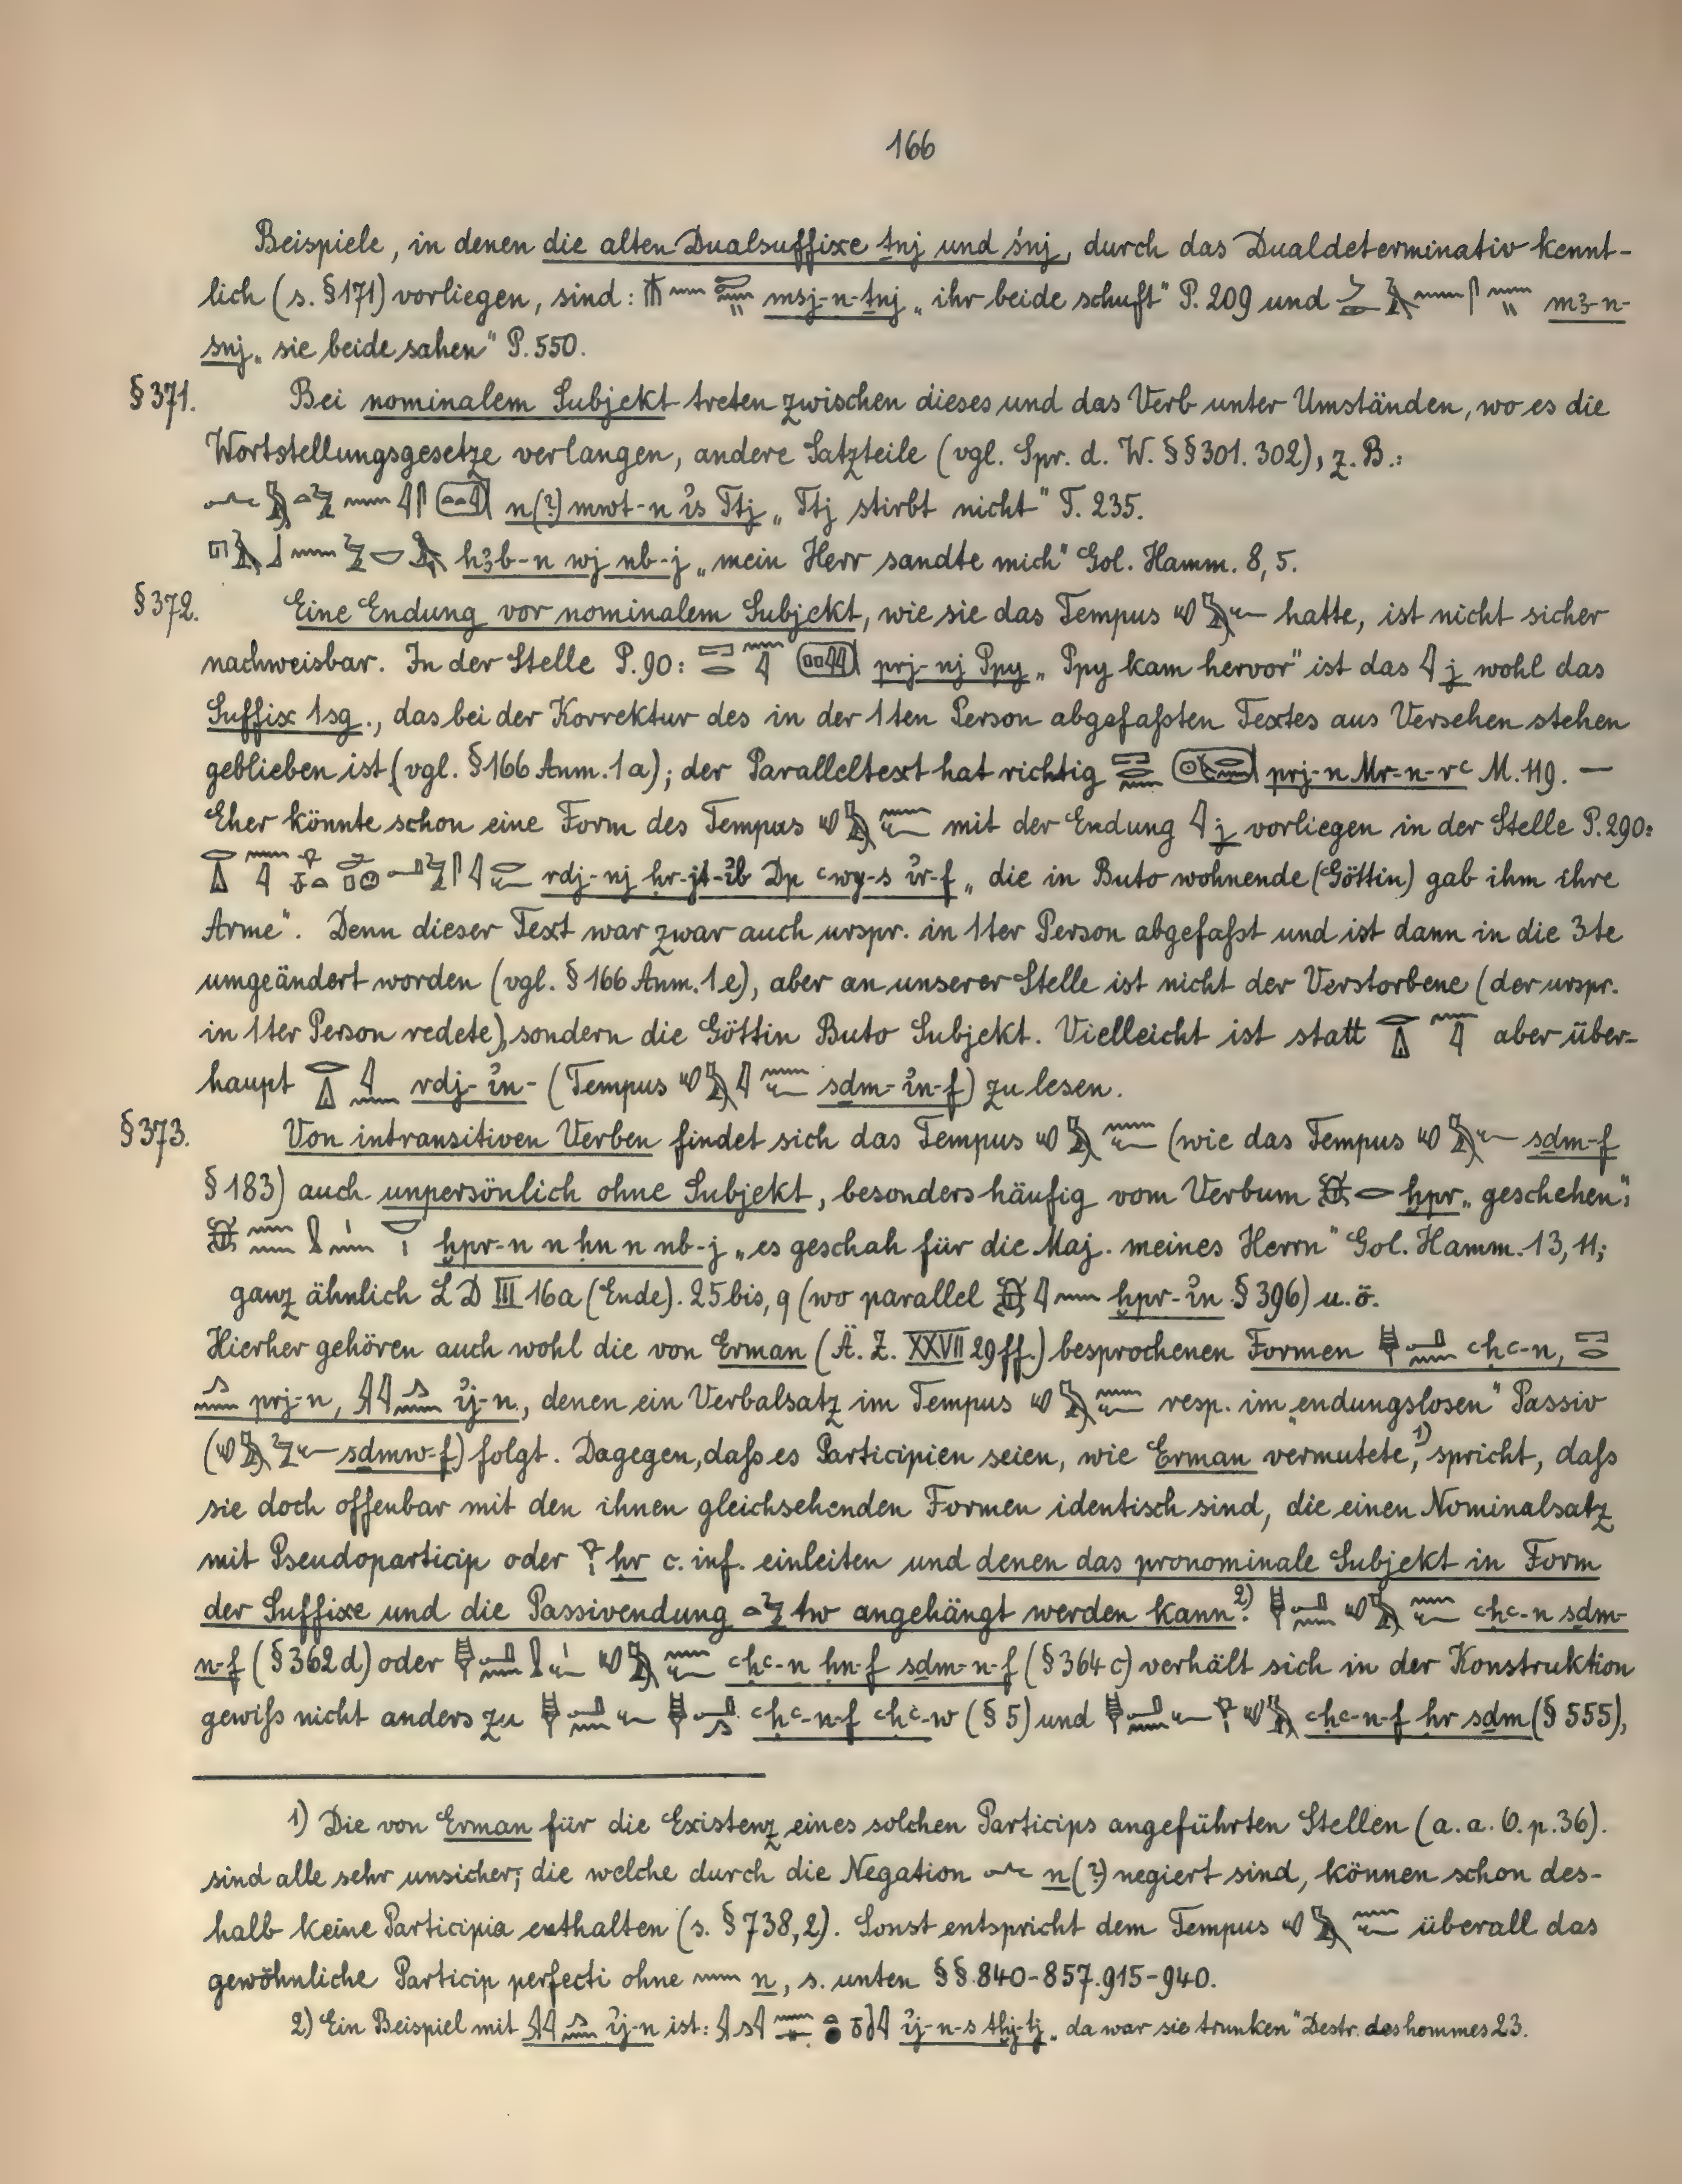 166
Beispiele, in denen die alten Dualsuffixe ṯnj und śnj, durch das Dualdeterminativ kennt-
lich (s. §171) vorliegen, sind: msj-n-ṯnj „ihr beide schuft" P. 209 und m3-n-
snj „sie beide sahen" P. 550.
§ 371. Bei nominalem Subjekt treten zwischen dieses und das Verb unter Umständen, wo es die
Wortstellungsgesetze verlangen, andere Satzteile (vgl. Spr. d. W. §§ 301. 302), z. B.:
n(?) mwt-n ỉs Ttj „Ttj stirbt nicht" T. 235.
h3b-n wj nb-j „mein Herr sandte mich" Gol. Hamm. 8, 5.
§ 372. Eine Endung vor nominalem Subjekt, wie sie das Tempus hatte, ist nicht sicher
nachweisbar. In der Stelle P. 90: prj-nj Ppy „Ppy kam hervor" ist das j wohl das
Suffix 1sg., das bei der Korrektur des in der 1ten Person abgefaßten Textes aus Versehen stehen
geblieben ist (vgl. §166 Anm. 1a); der Paralleltext hat richtig prj-n Mr-n-rꜥ M. 119. —
Eher könnte schon eine Form des Tempus mit der Endung j vorliegen in der Stelle P. 290:
rdj-nj ḥr-jt-ỉb Dp ꜥwy-s ỉr-f „die in Buto wohnende (Göttin) gab ihm ihre
Arme". Denn dieser Text war zwar auch urspr. in 1ter Person abgefaßt und ist dann in die 3te
umgeändert worden (vgl. § 166 Anm. 1e), aber an unserer Stelle ist nicht der Verstorbene (der urspr.
in 1ter Person redete), sondern die Göttin Buto Subjekt. Vielleicht ist statt aber über-
haupt rdj-ỉn- (Tempus sḏm-ỉn-f) zu lesen.
§ 373. Von intransitiven Verben findet sich das Tempus (wie das Tempus sḏm-f
§ 183) auch unpersönlich ohne Subjekt, besonders häufig vom Verbum ḫpr „geschehen":
ḫpr-n n ḥn n nb-j „es geschah für die Maj. meines Herrn" Gol. Hamm. 13, 11;
ganz ähnlich L D III 16a (Ende). 25 bis, q (wo parallel ḫpr-ỉn § 396) u. ö.
Hierher gehören auch wohl die von Erman (Ä. Z. XXVII 29 ff.) besprochenen Formen ꜥḥꜥ-n,
prj-n, ỉj-n, denen ein Verbalsatz im Tempus resp. im „endungslosen" Passiv
(sḏmw-f) folgt. Dagegen, daß es Participien seien, wie Erman vermutete,¹⁾ spricht, daß
sie doch offenbar mit den ihnen gleichsehenden Formen identisch sind, die einen Nominalsatz
mit Pseudoparticip oder ḥr c. inf. einleiten und denen das pronominale Subjekt in Form
der Suffixe und die Passivendung tw angehängt werden kann²⁾. ꜥḥꜥ-n sḏm-
n-f (§ 362 d) oder ꜥḥꜥ-n ḥn-f sḏm-n-f (§ 364 c) verhält sich in der Konstruktion
gewiß nicht anders zu ꜥḥꜥ-n-f ꜥḥꜥ-w (§ 5) und ꜥḥꜥ-n-f ḥr sḏm (§ 555),
1) Die von Erman für die Existenz eines solchen Particips angeführten Stellen (a. a. O. p. 36).
sind alle sehr unsicher; die welche durch die Negation n(?) negiert sind, können schon des-
halb keine Participia enthalten (s. § 738, 2). Sonst entspricht dem Tempus überall das
gewöhnliche Particip perfecti ohne n, s. unten §§ 840-857. 915-940.
2) Ein Beispiel mit ỉj-n ist: ỉj-n-s tḫj-tj „da war sie trunken" Destr. des hommes 23.